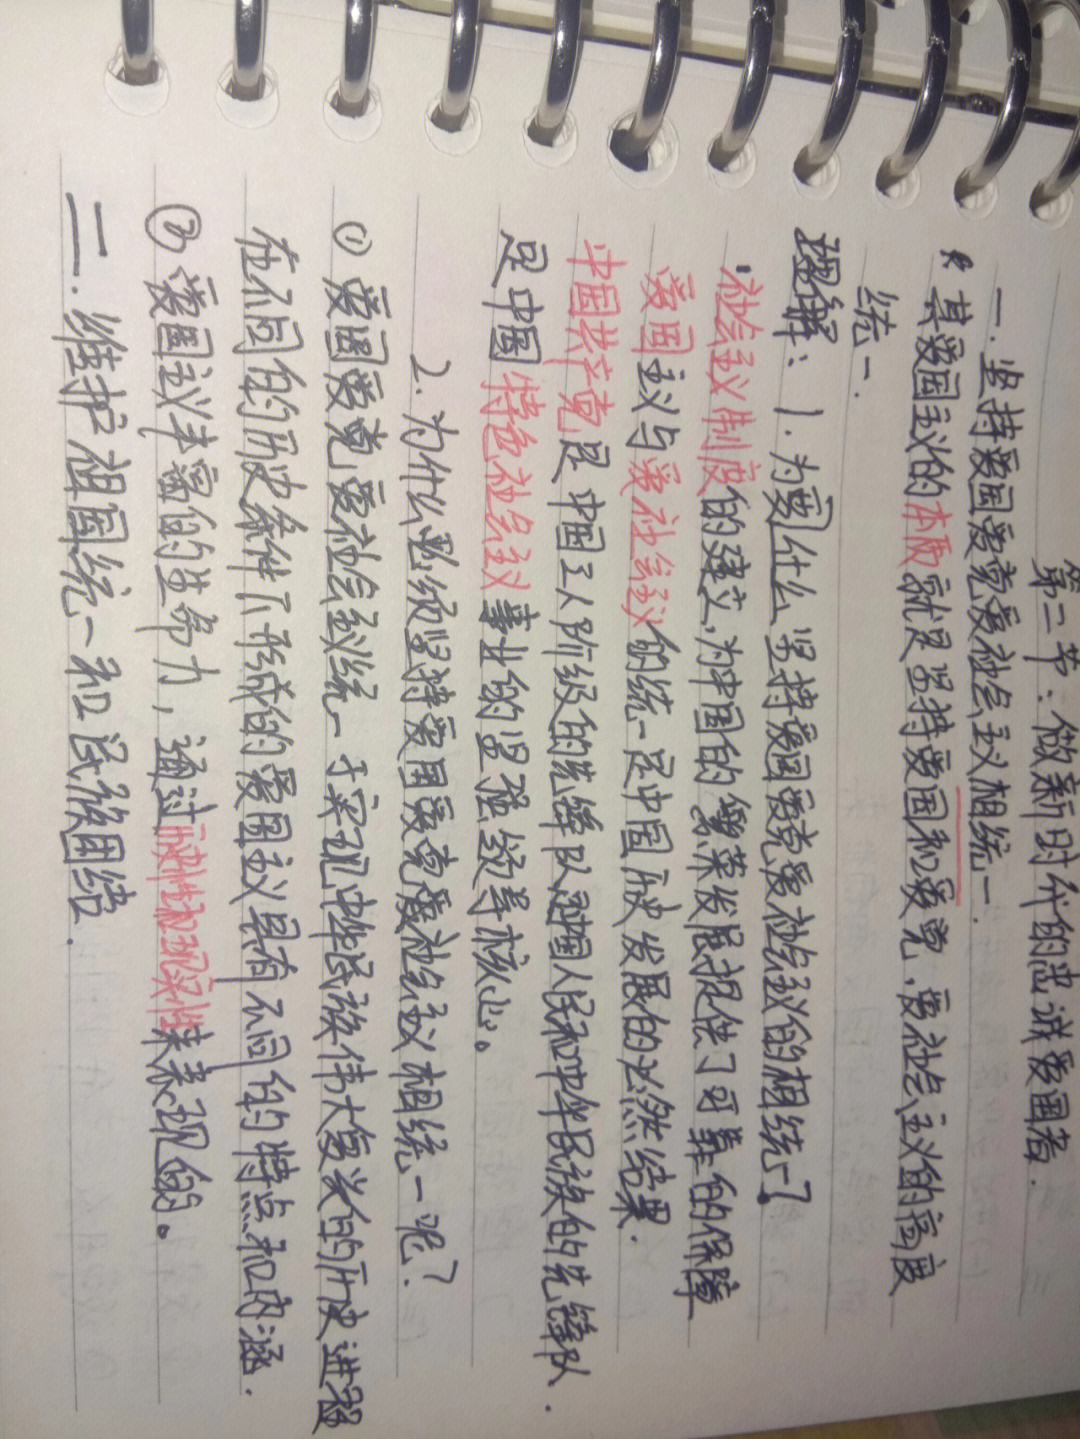 第二节：做新时代的忠诚爱国者.
一.坚持爱国爱党爱社会主义相统一.
其爱国主义的本质就是坚持爱国和爱党，爱社会主义的高度
统一.
理解：1.为要什么坚持爱国爱党爱社会主义的相统一?
社会主义制度的建立，为中国的繁荣发展提供了可靠的保障
爱国主义与爱社会主义的统一是中国历史发展的必然结果.
中国共产党是中国工人阶级的先锋队，中国人民和中华民族的先锋队.
是中国特色社会主义事业的坚强领导核心。
2.为什么必须坚持爱国爱党爱社会主义相统一呢?
① 爱国爱党爱社会主义统一于实现中华民族伟大复兴的历史进程
在不同的历史条件下形成的爱国主义具有不同的特点和内涵.
② 爱国主义丰富的生命力，通过历史性和现实性来表现的。
二.维护祖国统一和民族团结.